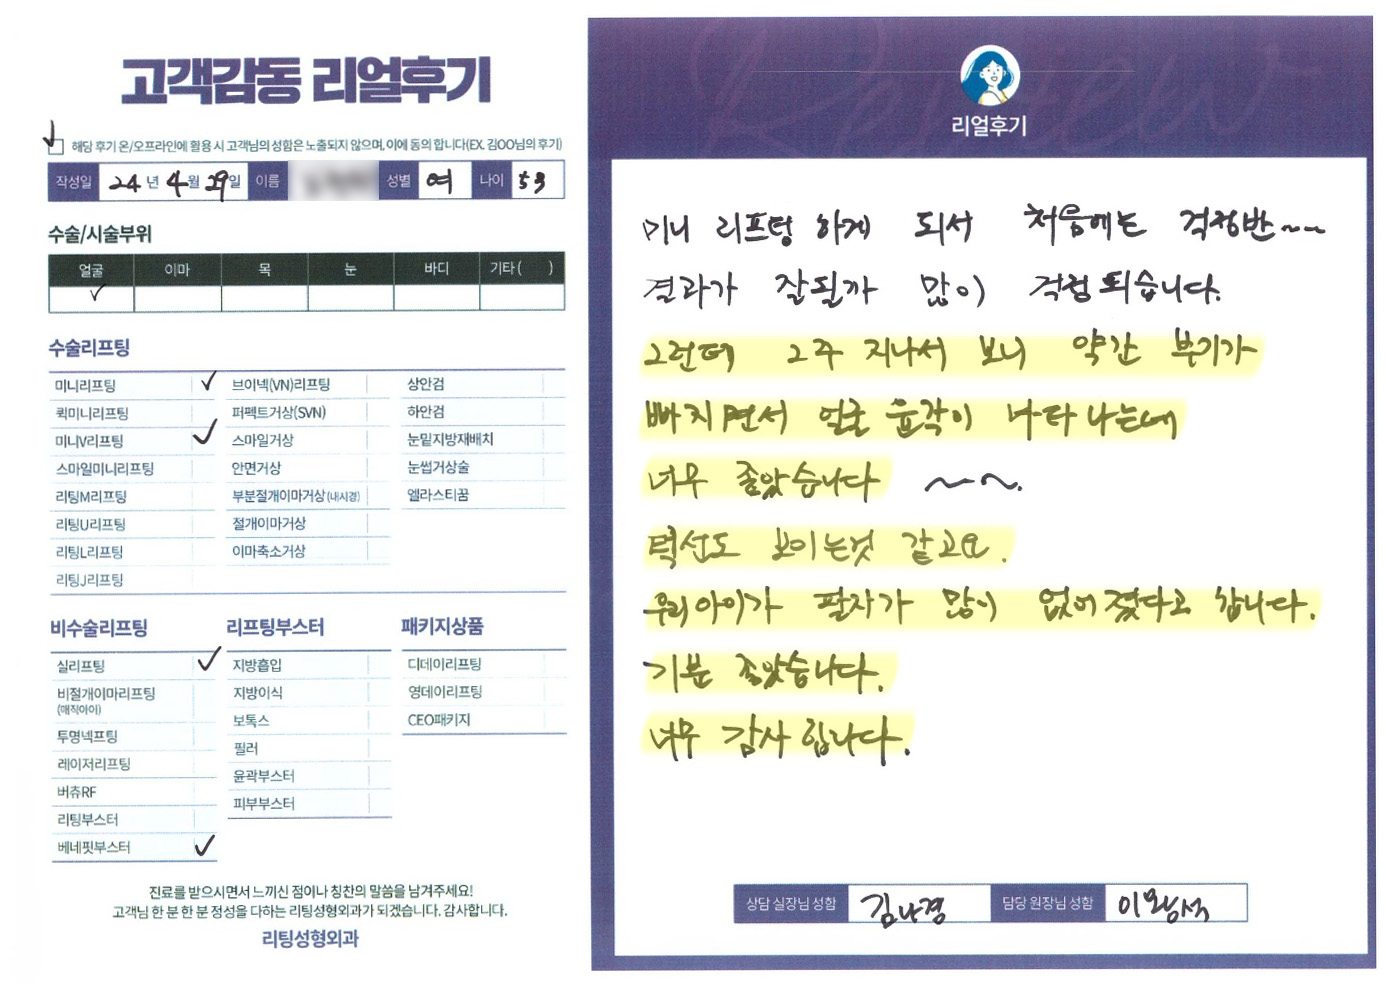 고객감동 리얼후기
해당 후기 온/오프라인에 활용 시 고객님의 성함은 노출되지 않으며, 이에 동의 합니다(EX. 김OO님의 후기)
작성일 24년 4월 29일 이름 성별 여 나이 53
수술/시술부위
얼굴 이마 목 눈 바디 기타 ( )
✓
수술리프팅
미니리프팅 ✓ 브이넥(VN)리프팅 상안검
퀵미니리프팅 퍼펙트거상(SVN) 하안검
미니V리프팅 ✓ 스마일거상 눈밑지방재배치
스마일미니리프팅 안면거상 눈썹거상술
리팅M리프팅 부분절개이마거상(내시경) 엘라스티꿈
리팅U리프팅 절개이마거상
리팅L리프팅 이마축소거상
리팅J리프팅
비수술리프팅 리프팅부스터 패키지상품
실리프팅 ✓ 지방흡입 디데이리프팅
비절개이마리프팅 지방이식 영데이리프팅
(매직아이) 보톡스 CEO패키지
투명넥프팅 필러
레이저리프팅 윤곽부스터
버츄RF 피부부스터
리팅부스터
베네핏부스터 ✓
진료를 받으시면서 느끼신 점이나 칭찬의 말씀을 남겨주세요!
고객님 한 분 한 분 정성을 다하는 리팅성형외과가 되겠습니다. 감사합니다.
리팅성형외과
리얼후기
미니 리프팅 하게 되서 처음에는 걱정반~~
결과가 잘될까 많이 걱정 되습니다.
그런데 2주 지나서 보니 약간 부기가
빠지면서 얼굴 윤곽이 나타나는데
너무 좋았습니다 ~~.
턱선도 보이는것 같고요.
우리아이가 팔자가 많이 없어졌다고 합니다.
기분 좋았습니다.
너무 감사 합니다.
상담 실장님 성함 김나경 담당 원장님 성함